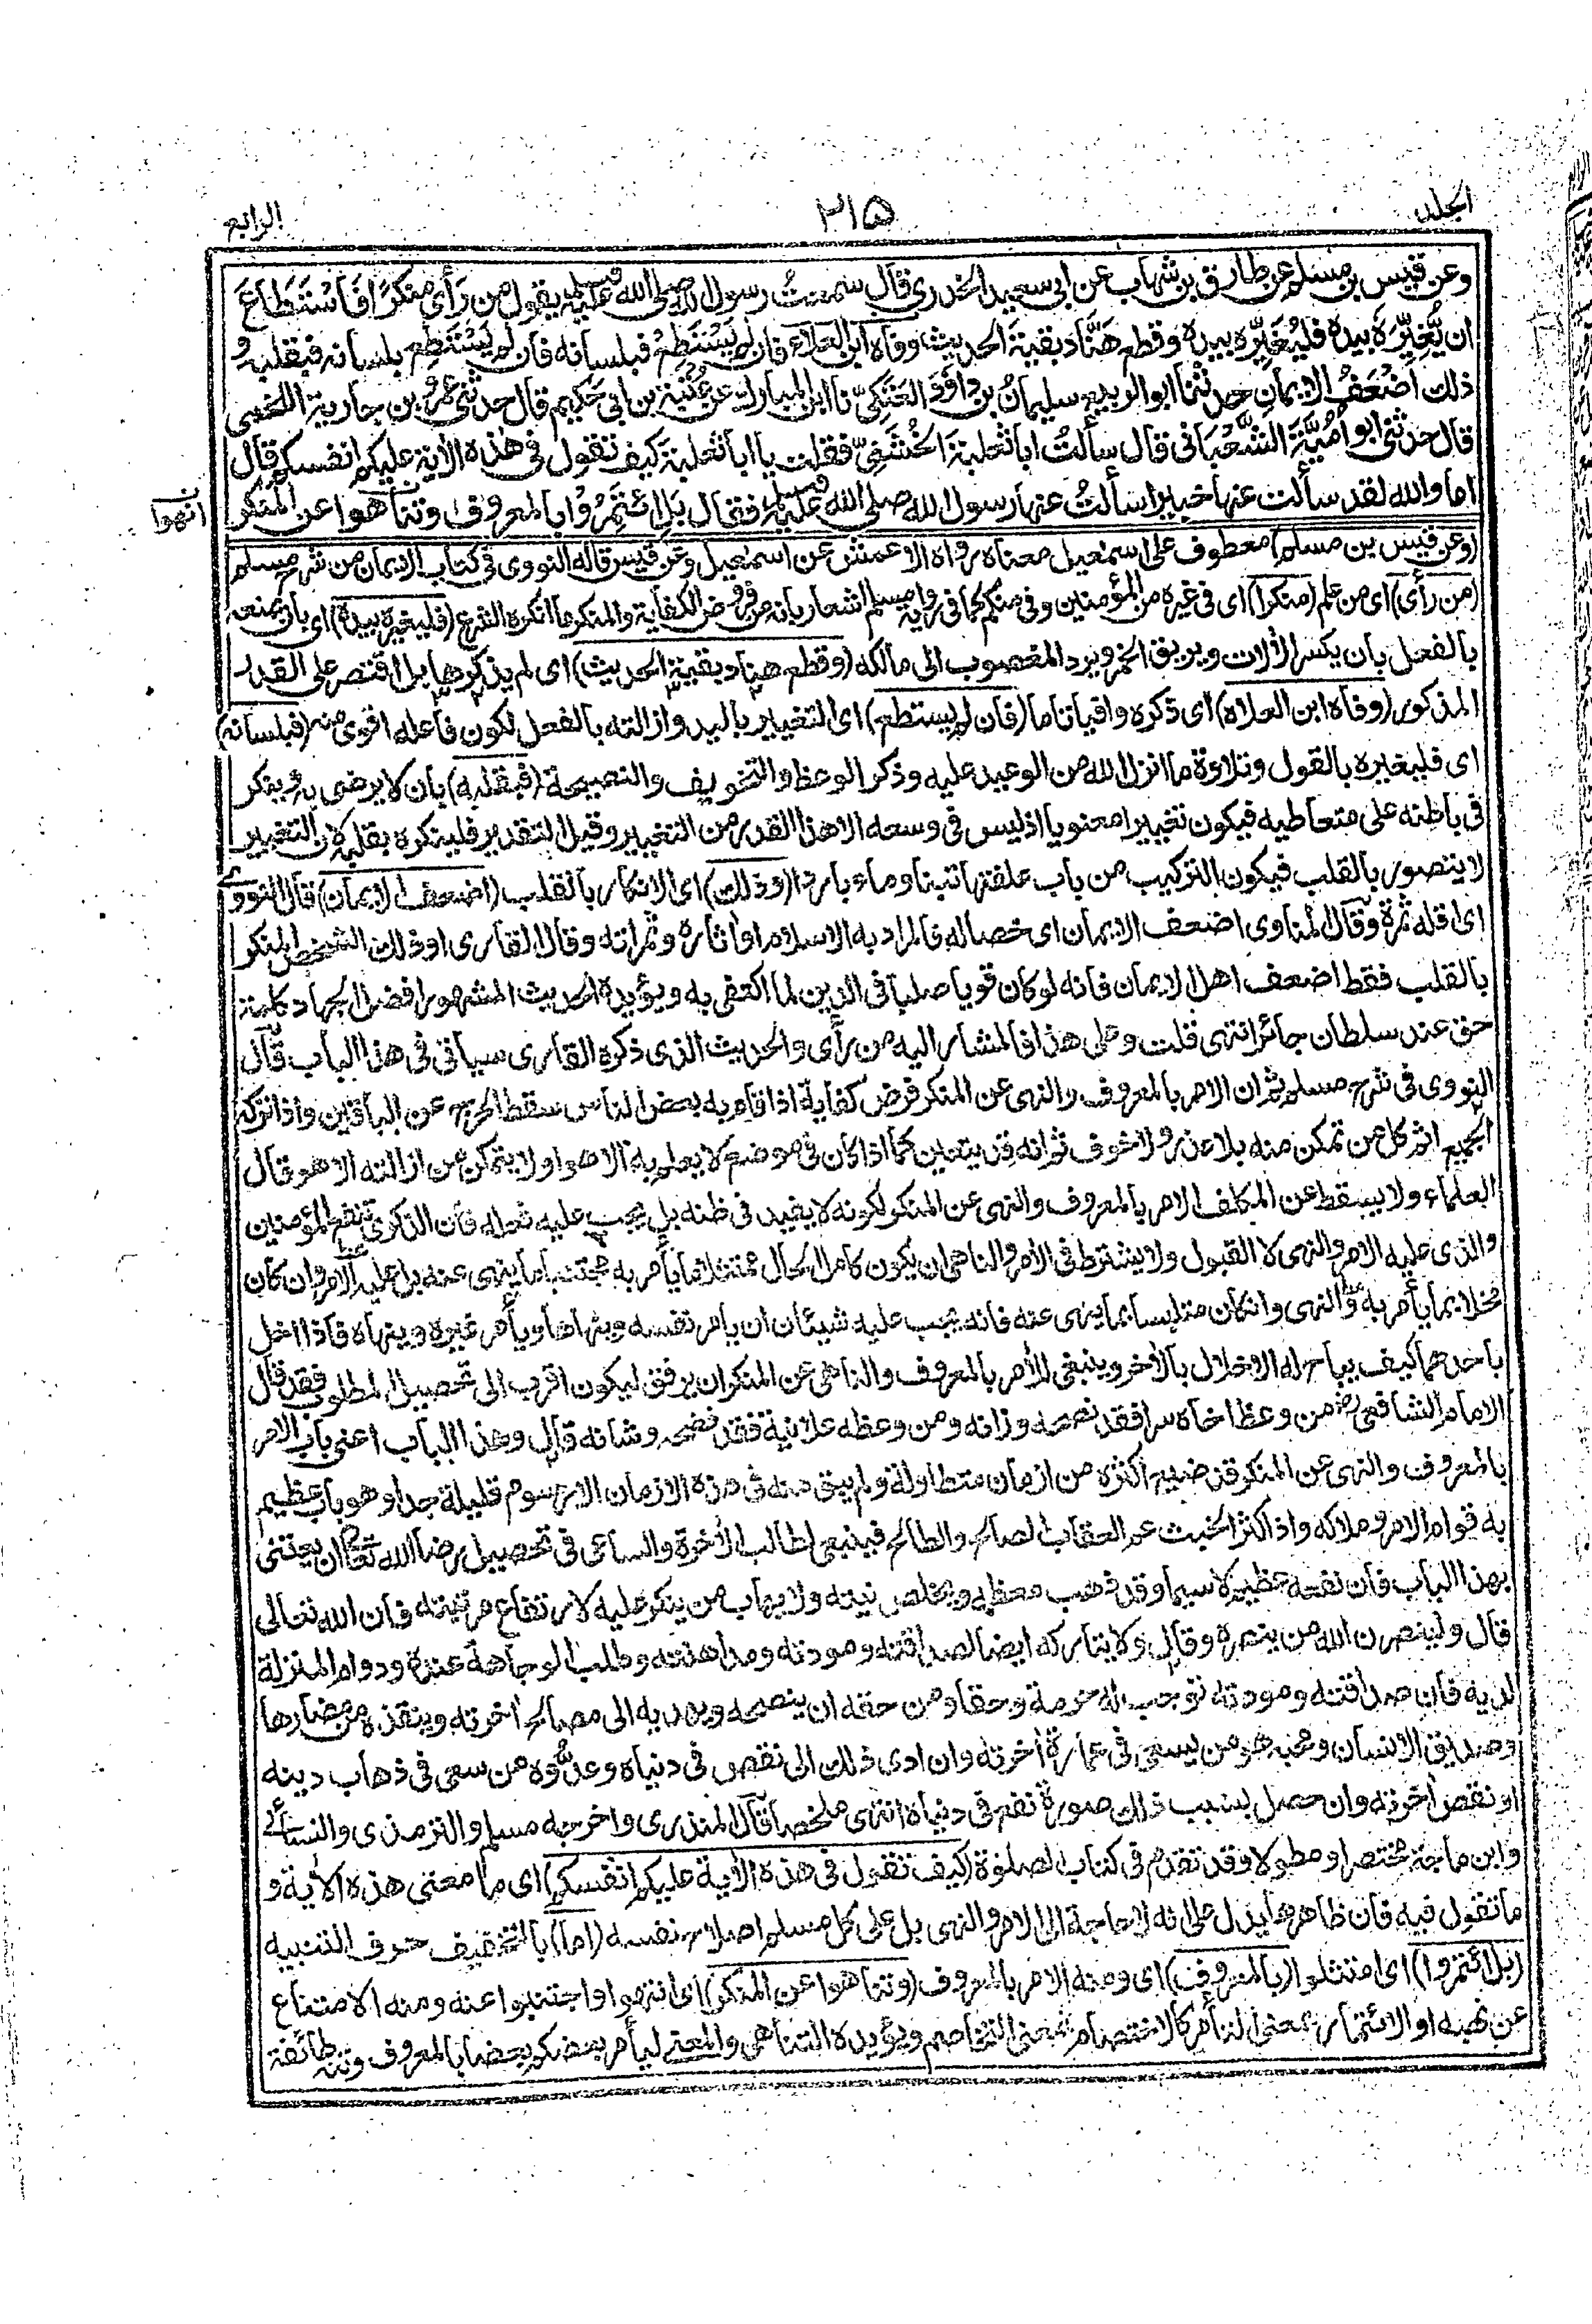 الجلد
٢١۵
الرابع
وعن قيس بن مسلم عن طارق بن شهاب عن ابى سعيد الخدرى قال سمعت رسول الله صلى الله عليه وسلم يقول من رَأى منكرًا فَاسْتَطَاعَ
ان يُّغَيِّرَهٗ بيده فليُغَيِّرْه بيده وقطع هَنَّاد بقيةَ الحديث وفاه ابن العلاء فان لم يَسْتَطِعْ فبلسانه فان لم يَسْتَطِعْ بلسانه فبقلبه و
ذلك اضْعَفُ الايمانِ حدثنا ابو الربيع سليمانُ بن داؤدَ العَتَكِىّ نا ابن المبارك عن عُتْبَةَ بن ابى حَكِيم قال حدثنى عَمْرُو بن جارية اللخمى
قال حدثنى ابو اُمَيَّةَ الشَّعْبَانى قال سألتُ ابا ثعلبةَ الخُشَنِىّ فقلت يا ابا ثعلبة كيف تقول فى هٰذه الاٰية عليكم انفسكم قال
اما والله لقد سألت عنها خبيرا سألتُ عنها رسول الله صلى الله عليه وسلم فقال بَلِ ائْتَمِرُوْا بالمعروف وتناهوا عن المنكر
انتهوا
(وعن قيس بن مسلم) معطوف على اسمٰعيل معناه رواه الاعمش عن اسمٰعيل وعن قيس قاله النووى فى كتاب الايمان من شرح مسلم
(من رأى) اى من علم (منكرا) اى فى غيره من المؤمنين وفى منكم كما فى رواية مسلم اشعار بانه من فروض الكفاية والمنكر ما انكره الشرع (فليغيره بيده) اى بان يمنعه
بالفعل بان يكسر الاٰلات ويريق الخمر ويرد المغصوب الى مالكه (وقطع هناد بقية الحديث) اى لم يذكرها بل اقتصر على القدر
المذكور (وفاه ابن العلاء) اى ذكره وافيا تاما (فان لم يستطع) اى التغيير باليد وازالته بالفعل لكون فاعله اقوى منه (فبلسانه)
اى فليغيره بالقول وتلاوة ما انزل الله من الوعيد عليه وذكر الوعظ والتخويف والنصيحة (فبقلبه) بان لا يرضى به وينكر
فى باطنه على متعاطيه فيكون تغييرا معنويا اذ ليس فى وسعه الا هذا القدر من التغيير وقيل التقدير فلينكره بقلبه لان التغيير
لا يتصور بالقلب فيكون التركيب من باب علفتها تبنا وماء باردا (وذلك) اى الانكار بالقلب (اضعف الايمان) قال النووى
اى اقله ثمرة وقال المناوى اضعف الايمان اى خصاله فالمراد به الاسلام او اٰثاره وثمراته وقال القارى او ذلك الشخص المنكر
بالقلب فقط اضعف اهل الايمان فانه لو كان قويا صلبا فى الدين لما اكتفى به ويؤيده الحديث المشهور افضل الجهاد كلمة
حق عند سلطان جائر انتهى قلت وعلى هذا فالمشار اليه من رأى والحديث الذى ذكره القارى سياتى فى هذا الباب قال
النووى فى شرح مسلم ثم ان الامر بالمعروف والنهى عن المنكر فرض كفاية اذا قام به بعض الناس سقط الحرج عن الباقين واذا تركه
الجميع اثم كل من تمكن منه بلا عذر ولا خوف ثم انه قد يتعين كما اذا كان فى موضع لا يعلم به الا هو او لا يتمكن من ازالته الا هو قال
العلماء ولا يسقط عن المكلف الامر بالمعروف والنهى عن المنكر لكونه لا يفيد فى ظنه بل يجب عليه فعله فان الذكرى تنفع المؤمنين
والذى عليه الامر والنهى لا القبول ولا يشترط فى الاٰمر والناهى ان يكون كامل الحال ممتثلا ما يأمر به مجتنبا ما ينهى عنه بل عليه الامر وان كان
مخلا بما يأمر به والنهى وان كان متلبسا بما ينهى عنه فانه يجب عليه شيئان ان يامر نفسه وينهاها ويأمر غيره وينهاه فاذا اخل
باحدهما كيف يباح له الاخلال بالاٰخر وينبغى للاٰمر بالمعروف والناهى عن المنكر ان يرفق ليكون اقرب الى تحصيل المطلوب فقد قال
الامام الشافعى رح من وعظ اخاه سرا فقد نصحه وزانه ومن وعظه علانية فقد فضحه وشانه قال وهذا الباب اعنى باب الامر
بالمعروف والنهى عن المنكر قد ضيع اكثره من ازمان متطاولة ولم يبق منه فى هذه الازمان الا رسوم قليلة جدا وهو باب عظيم
به قوام الامر وملاكه واذا كثر الخبث عم العقاب الصالح والطالح فينبغى لطالب الاٰخرة والساعى فى تحصيل رضا الله تعالى ان يعتنى
بهذا الباب فان نفعه عظيم لا سيما وقد ذهب معظمه ويخلص نيته ولا يهاب من ينكر عليه لارتفاع مرتبته فان الله تعالى
قال ولينصرن الله من ينصره وقال ولا يتاركه ايضا لصداقته ومودته ومداهنته وطلب الوجاهة عنده ودوام المنزلة
لديه فان صداقته ومودته توجب له حرمة وحقا ومن حقه ان ينصحه ويهديه الى مصالح اٰخرته وينقذه من مضارها
وصديق الانسان ومحبه هو من يسعى فى عمارة اٰخرته وان ادى ذلك الى نقص فى دنياه وعدُوّه من سعى فى ذهاب دينه
او نقص اٰخرته وان حصل بسبب ذلك صورة نفع فى دنياه انتهى ملخصا قال المنذرى واخرجه مسلم والترمذى والنسائى
وابن ماجة مختصرا ومطولا وقد تقدم فى كتاب الصلٰوة (كيف تقول فى هذه الاٰية عليكم انفسكم) اى ما معنى هذه الاٰية و
ما تقول فيه فان ظاهرها يدل على انه لا حاجة الى الامر والنهى بل على كل مسلم اصلاح نفسه (اما) بالتخفيف حرف التنبيه
(بل ائتمروا) اى امتثلوا (بالمعروف) اى ومنه الامر بالمعروف (وتناهوا عن المنكر) اى انتهوا واجتنبوا عنه ومنه الامتناع
عن نهيه او الائتمار بمعنى التأمر كالاختصام بمعنى التخاصم ويؤيده التناهى والمعنى ليأمر بعضكم بعضا بالمعروف وتنه طائفة